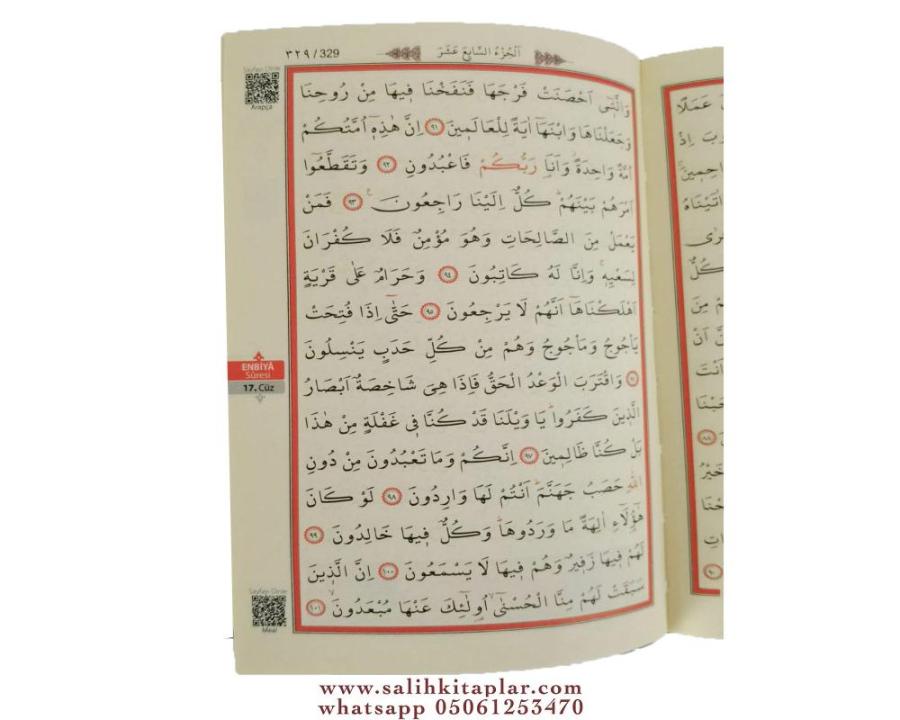 ٣٢٩ / 329
اَلْجُزْءُ السَّابِعَ عَشَرَ
Sayfayı Dinle
Arapça
وَالَّتٖٓي اَحْصَنَتْ فَرْجَهَا فَنَفَخْنَا فٖيهَا مِنْ رُوحِنَا
وَجَعَلْنَاهَا وَابْنَهَٓا اٰيَةً لِلْعَالَمٖينَ ٩١ اِنَّ هٰذِهٖٓ اُمَّتُكُمْ
اُمَّةً وَاحِدَةًؗ وَاَنَا۬ رَبُّكُمْ فَاعْبُدُونِ ٩٢ وَتَقَطَّعُٓوا
اَمْرَهُمْ بَيْنَهُمْؕ كُلٌّ اِلَيْنَا رَاجِعُونَࣖ ٩٣ فَمَنْ
يَعْمَلْ مِنَ الصَّالِحَاتِ وَهُوَ مُؤْمِنٌ فَلَا كُفْرَانَ
لِسَعْيِهٖۚ وَاِنَّا لَهُ كَاتِبُونَ ٩٤ وَحَرَامٌ عَلٰى قَرْيَةٍ
اَهْلَكْنَاهَٓا اَنَّهُمْ لَا يَرْجِعُونَ ٩٥ حَتّٰٓى اِذَا فُتِحَتْ
يَأْجُوجُ وَمَأْجُوجُ وَهُمْ مِنْ كُلِّ حَدَبٍ يَنْسِلُونَ
٩٦ وَاقْتَرَبَ الْوَعْدُ الْحَقُّ فَاِذَا هِيَ شَاخِصَةٌ اَبْصَارُ
الَّذٖينَ كَفَرُواؕ يَا وَيْلَنَا قَدْ كُنَّا فٖي غَفْلَةٍ مِنْ هٰذَا
بَلْ كُنَّا ظَالِمٖينَ ٩٧ اِنَّكُمْ وَمَا تَعْبُدُونَ مِنْ دُونِ
اللّٰهِ حَصَبُ جَهَنَّمَؕ اَنْتُمْ لَهَا وَارِدُونَ ٩٨ لَوْ كَانَ
هٰٓؤُ۬لَٓاءِ اٰلِهَةً مَا وَرَدُوهَاؕ وَكُلٌّ فٖيهَا خَالِدُونَ ٩٩
لَهُمْ فٖيهَا زَفٖيرٌ وَهُمْ فٖيهَا لَا يَسْمَعُونَ ١٠٠ اِنَّ الَّذٖينَ
سَبَقَتْ لَهُمْ مِنَّا الْحُسْنٰٓىۙ اُو۬لٰٓئِكَ عَنْهَا مُبْعَدُونَۙ ١٠١
ENBİYÂ
Sûresi
17. Cüz
Sayfayı Dinle
Meal
www.salihkitaplar.com
whatsapp 05061253470